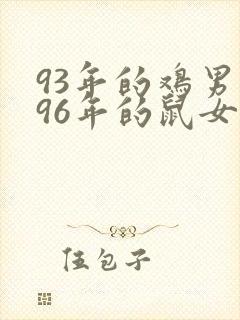 93年的鸡男
96年的鼠女
伍包子